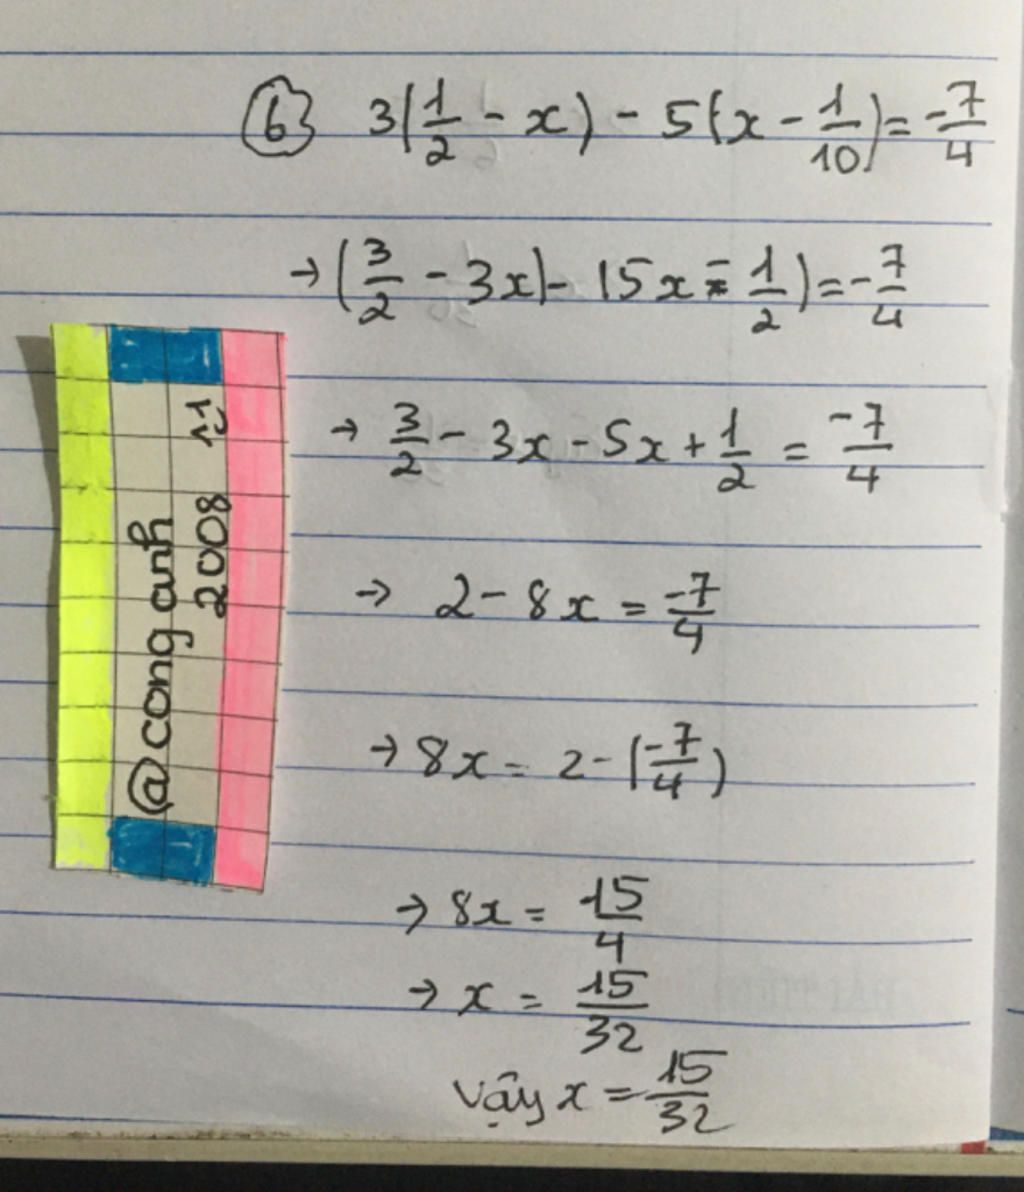 6) 3(1/2 - x) - 5(x - 1/10) = -7/4
→ (3/2 - 3x) - 15x - 1/2) = -7/4
→ 3/2 - 3x - 5x + 1/2 = -7/4
→ 2 - 8x = -7/4
→ 8x = 2 - (-7/4)
→ 8x = 15/4
→ x = 15/32
Vậy x = 15/32
@cong anh
2008